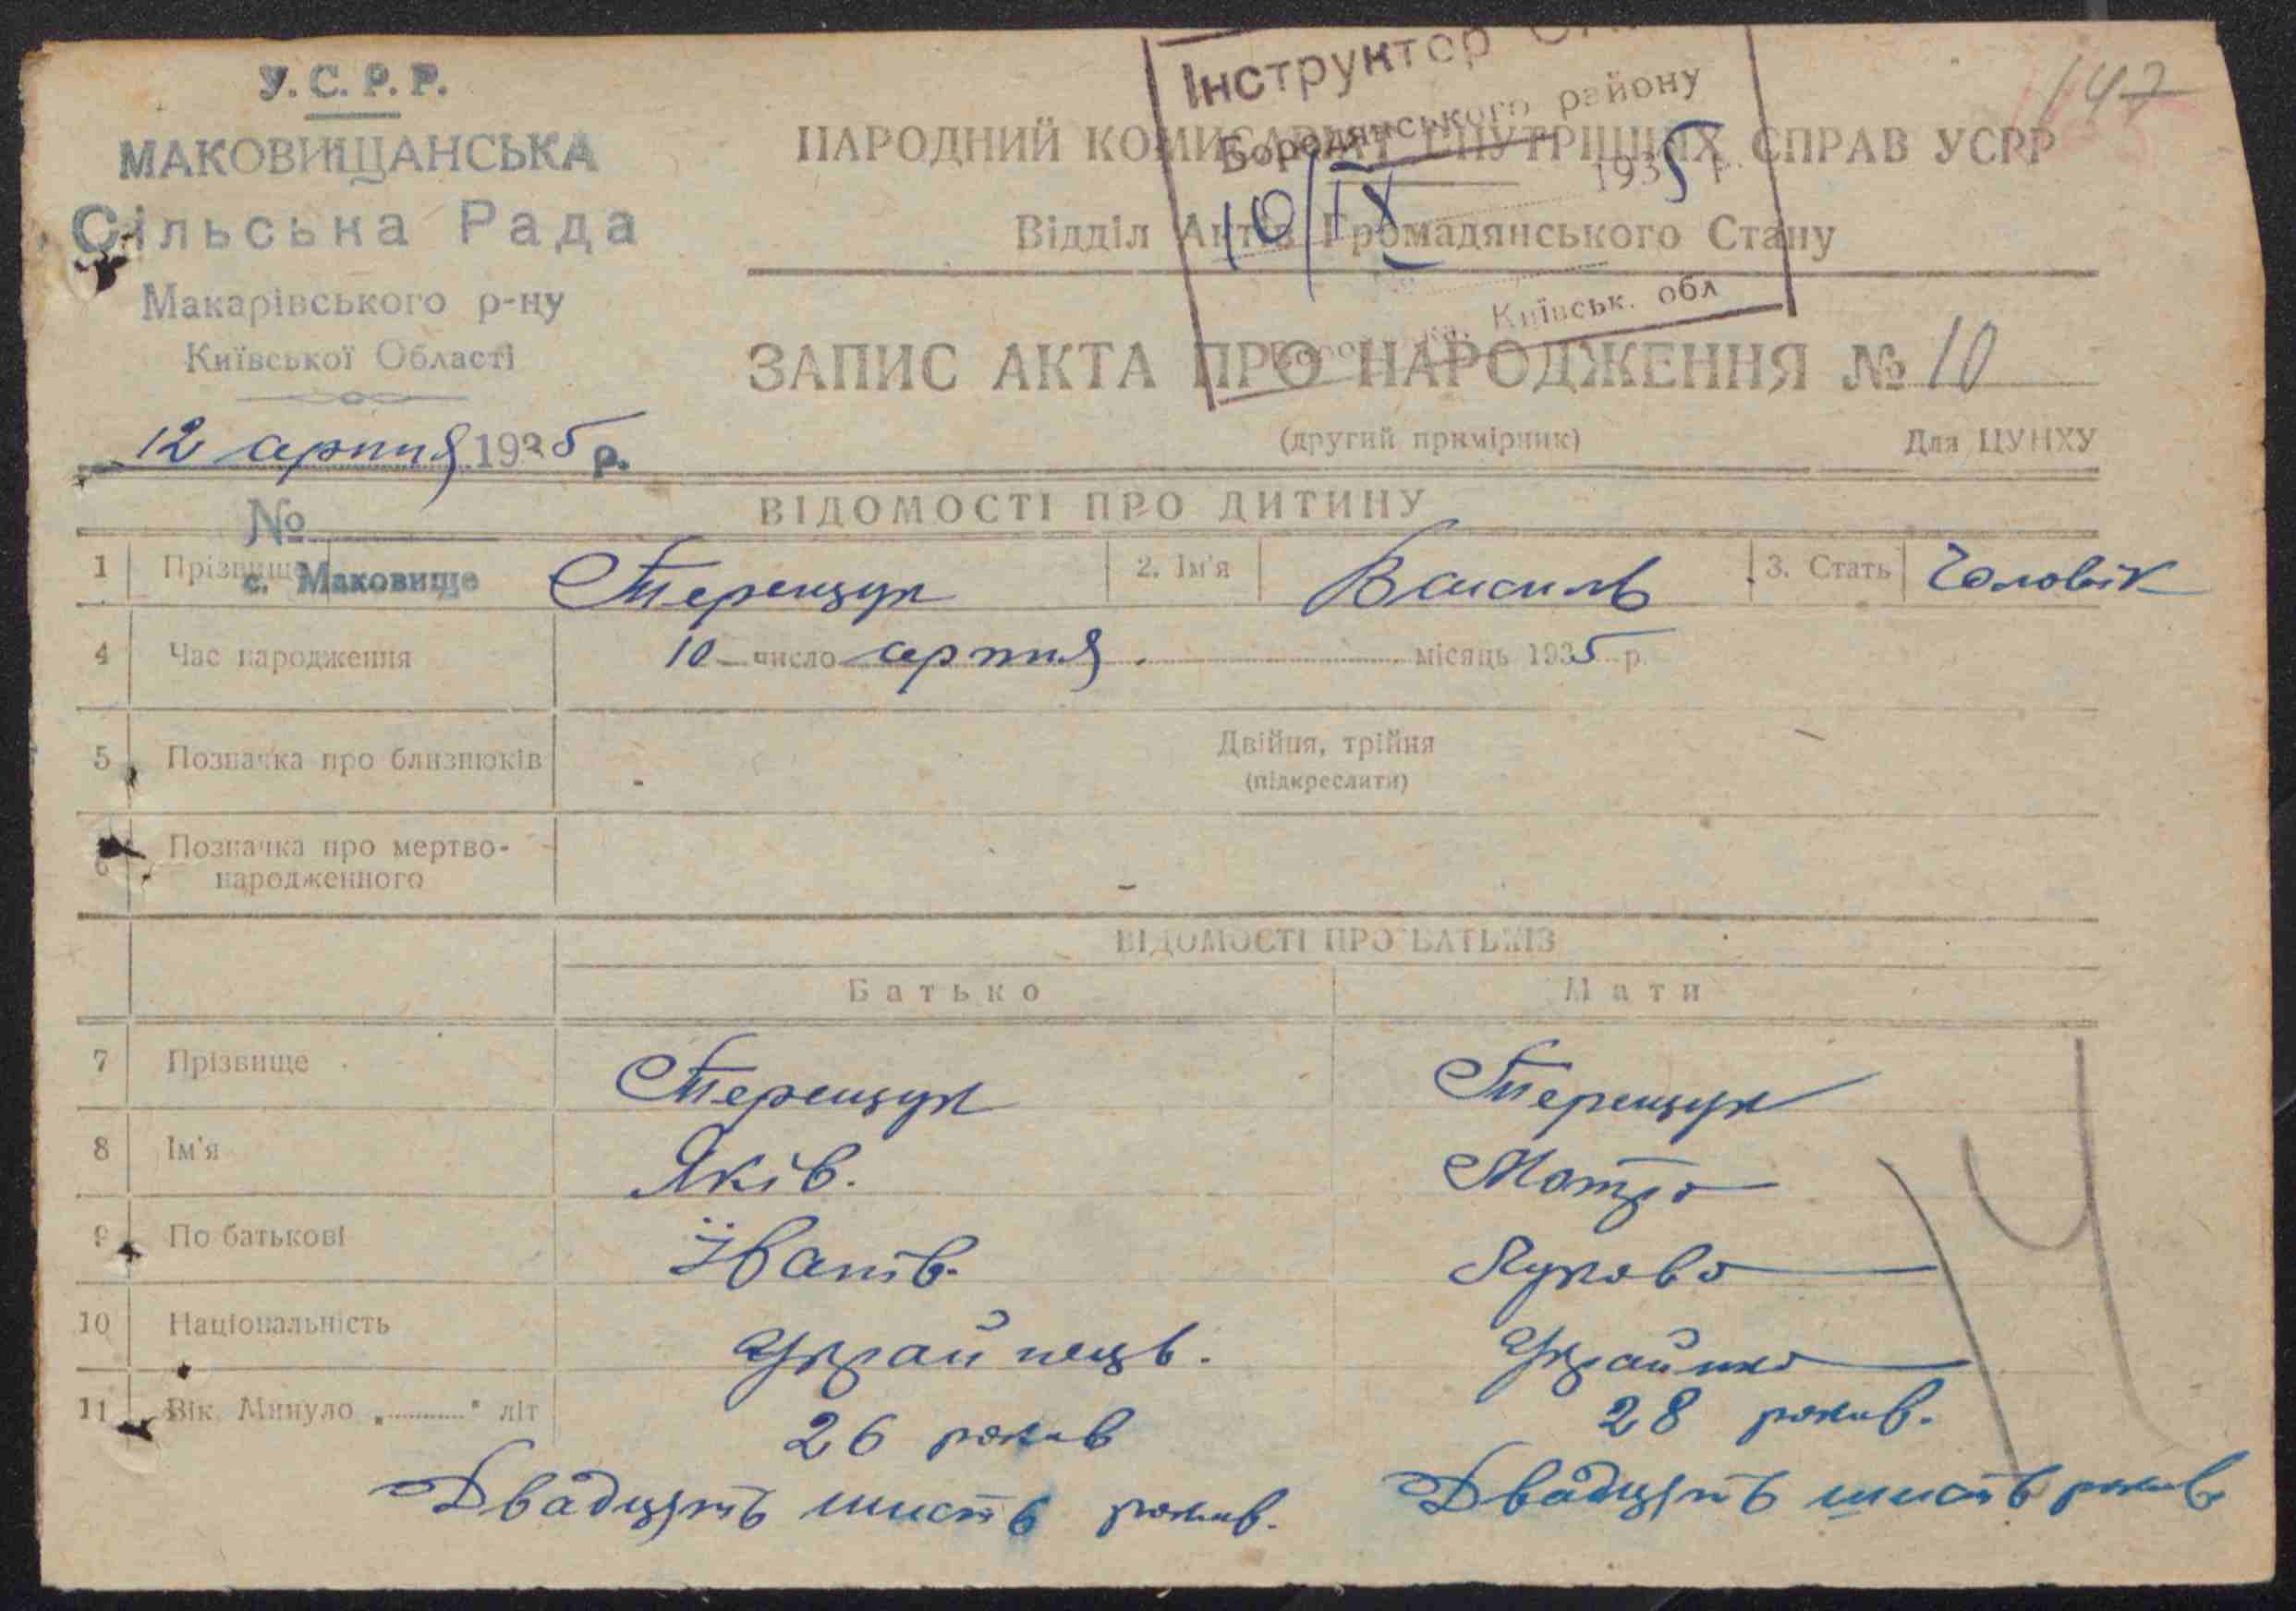 У.С.Р.Р.
МАКОВИЩАНСЬКА
Сільська Рада
Макарівського р-ну
Київської Області
12 серпня 1935 р.
№
с. Маковище
Інструктор
Бородянського району
10/IX 1935 р.
Київськ. обл
147
НАРОДНИЙ КОМИСАРІЯТ ВНУТРІШНІХ СПРАВ УСРР
Відділ Актів Громадянського Стану
ЗАПИС АКТА ПРО НАРОДЖЕННЯ № 10
(другий примірник) Для ЦУНХУ
ВІДОМОСТІ ПРО ДИТИНУ
1 Прізвище Терещук 2. Ім'я Василь 3. Стать Чоловік
4 Час народження 10 число серпня місяць 1935 р.
5 Позначка про близнюків - Двійня, трійня -
(підкреслити)
6 Позначка про мертво-
народженного -
ВІДОМОСТІ ПРО БАТЬКІВ
Батько Мати
7 Прізвище Терещук Терещук
8 Ім'я Яків. Мотря
9 По батькові Їванів.
10 Національність Українець. Українка
11 Вік Минуло „..........“ літ 26 років 28 років.
Двадцять шисть років. Двадцять шисть років
14